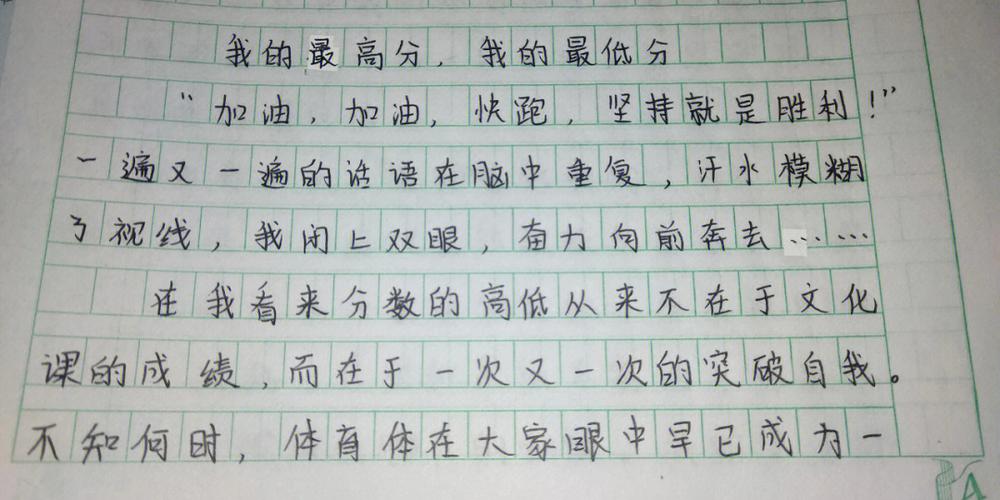 我的最高分，我的最低分
“加油，加油，快跑，坚持就是胜利！”
一遍又一遍的话语在脑中重复，汗水模糊
了视线，我闭上双眼，奋力向前奔去……
在我看来分数的高低从来不在于文化
课的成绩，而在于一次又一次的突破自我。
不知何时，体育体在大家眼中早已成为一
A